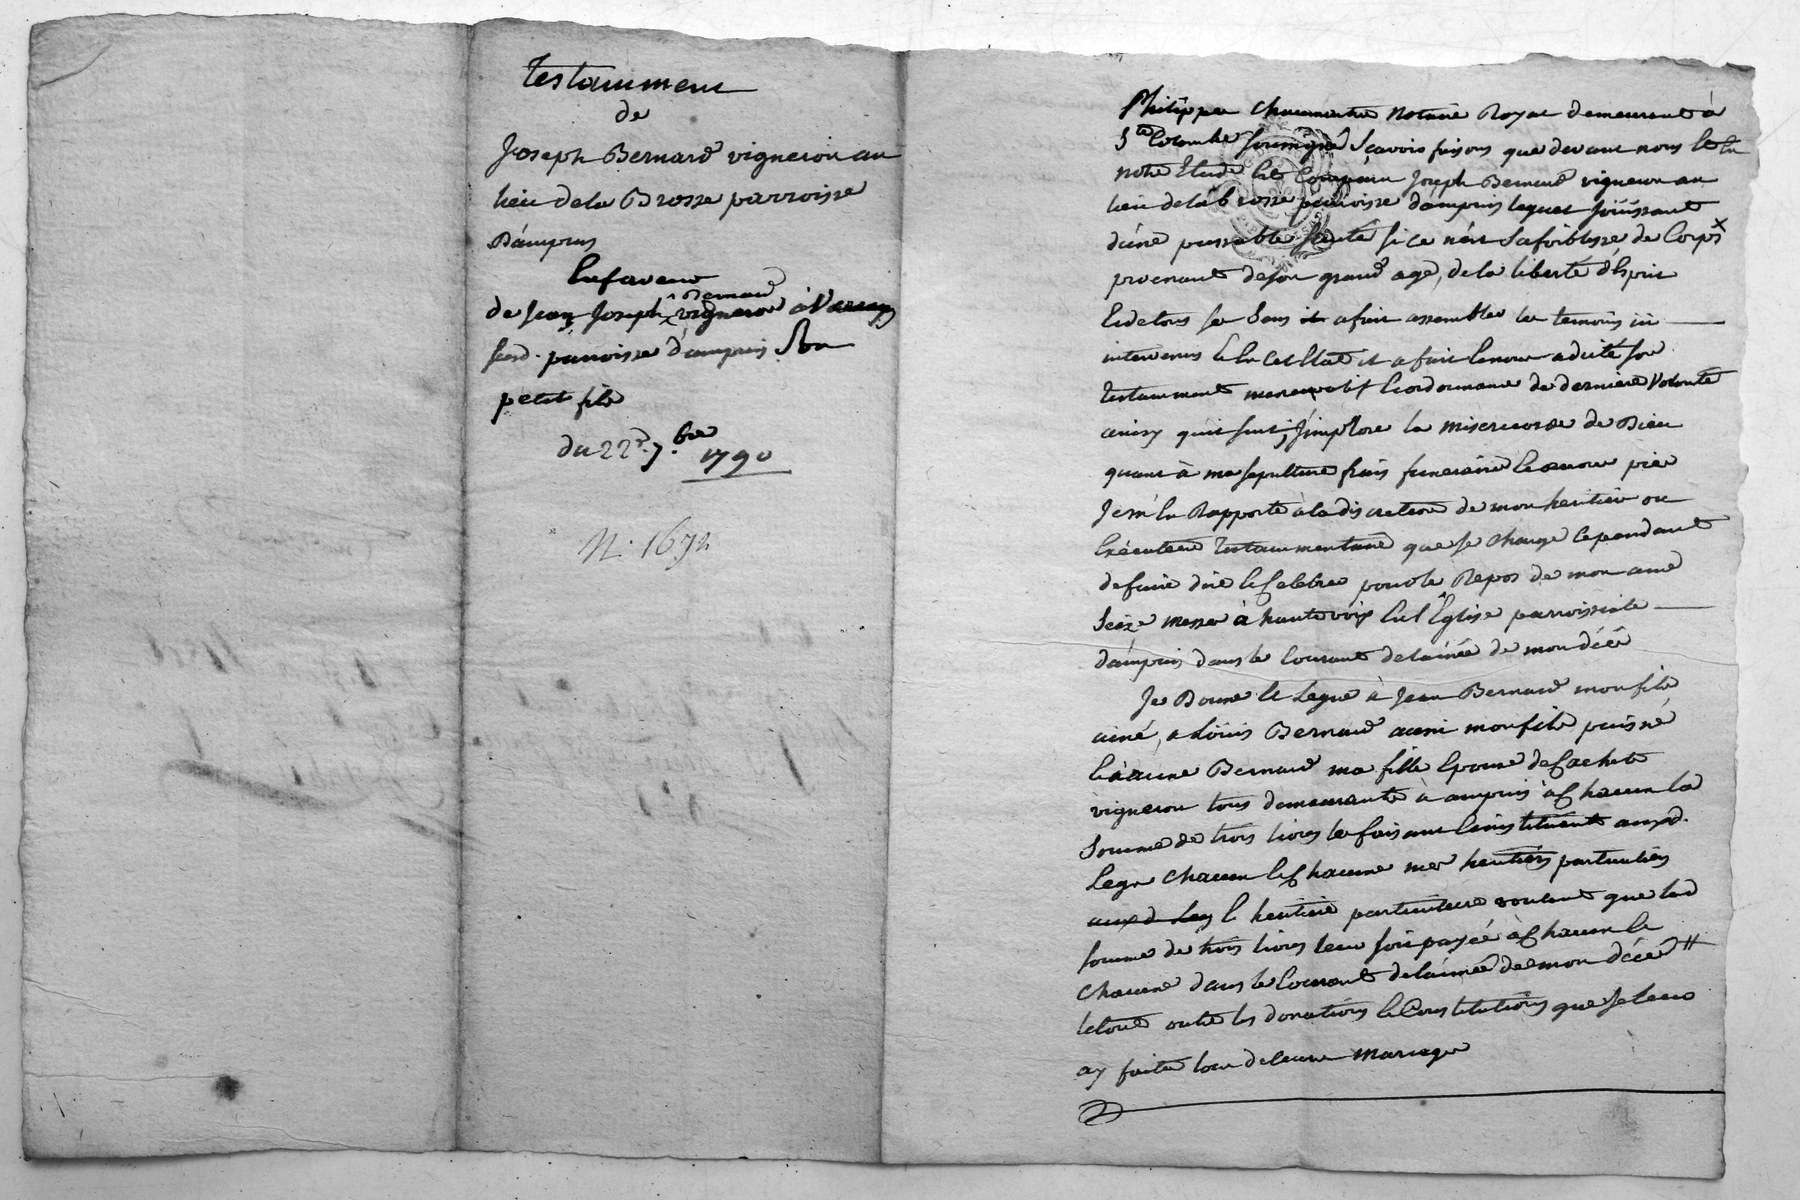 Testamment
de
Joseph Bernard vigneron au
lieu de la Brosse parroisse
Dámpuis
En faveur
Bernard
de Jean Joseph vigneron à
susd. parroisse d'ampuis Son
petit fils
du 22e. 7.bre 1790
N. 1672
Philippe Chaumartin Notaire Royal demeurant à
Ste Colombe soussigné Sçavoir faisons que devant nous Et En
notre Etude Est Comparu Joseph Bernard vigneron au
lieu de la brosse parroisse dampuis lequel Jouissant
d'une passable santé si ce n'est la foiblesse de Corps x
provenant de son grand age, de la liberté d'Esprit
Et de tous ses Sens a fait assembler les temoins ici
intervenus Et En Cet Etat il a fait Et nous a dicté son
Testamment nuncupatif Et ordonnance de derniere Volonté
ainsy qu'il suit, J'implore la misericorde de Dieu
quant à ma sepulture frais funeraire Et œuvre pies
Je m'En Rapporte à la discretion de mon heritier ou
Exécuteur Testammentaire que Je charge Cependant
de faire dire Et Celebrer pour le Repos de mon ame
Seize messes à haute voix En l'Eglise parroissiale
dámpuis dans le Courant de l'année de mon décé
Je Donne Et Legue à Jean Bernard mon fils
ainé, a Loüis Bernard aussi mon fils puisné
Et à anne Bernard ma fille Epouse de Cachet
vigneron tous demeurants à ampuis à Chacun la
Somme de trois livres les faisant Et instituant auxd.
Legs Chacun Et Chacune mes heritiers particuliers
auxd. Legs Et heritiere particuliere voulant que lad
somme de trois livres leur soit payée à Chacun Et
Chacune dans le Courant de l'année de mon décé #
Et outre les donations Et Constitutions que Je leur
ay faites lors de leurs Mariages